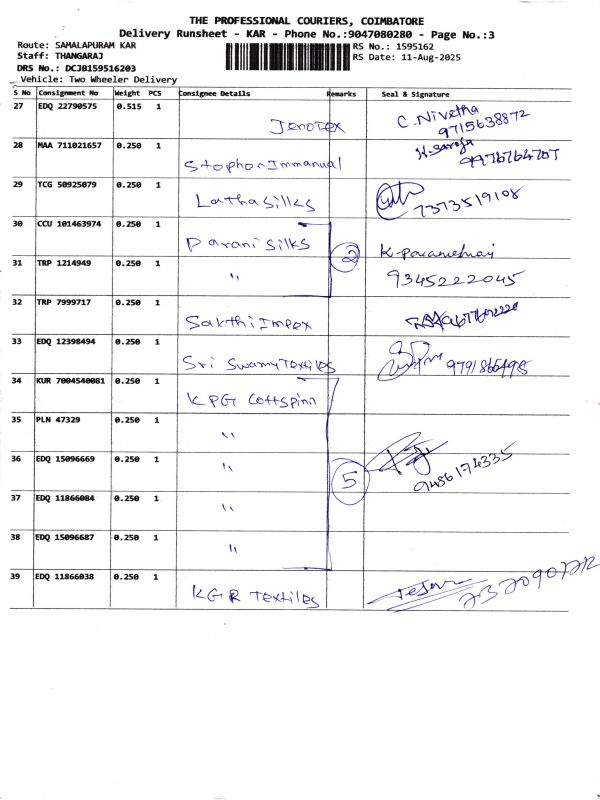 THE PROFESSIONAL COURIERS, COIMBATORE
Delivery Runsheet - KAR - Phone No.:9047080280 - Page No.:3
Route: SAMALAPURAM KAR
RS No.: 1595162
Staff: THANGARAJ
RS Date: 11-Aug-2025
DRS No.: DCJB159516203
Vehicle: Two Wheeler Delivery
S No Consignment No Weight PCS Consignee Details Remarks Seal & Signature
27 EDQ 22790575 0.515 1 Jenotex C. Nivetha 9715638872
28 MAA 711021657 0.250 1 Stephen Immanual
29 TCG 50925079 0.250 1 Latha silks 7373519108
30 CCU 101463974 0.250 1 Parani silks 2
31 TRP 1214949 0.250 1 " 9345222045
32 TRP 7999717 0.250 1 Sakthi Impex
33 EDQ 12398494 0.250 1 Sri Swamy Textiles
34 KUR 7004540081 0.250 1 KPG Cottspinn
35 PLN 47329 0.250 1 "
36 EDQ 15096669 0.250 1 " 5 9486174335
37 EDQ 11866084 0.250 1 "
38 EDQ 15096687 0.250 1 "
39 EDQ 11866038 0.250 1 KGR Textiles